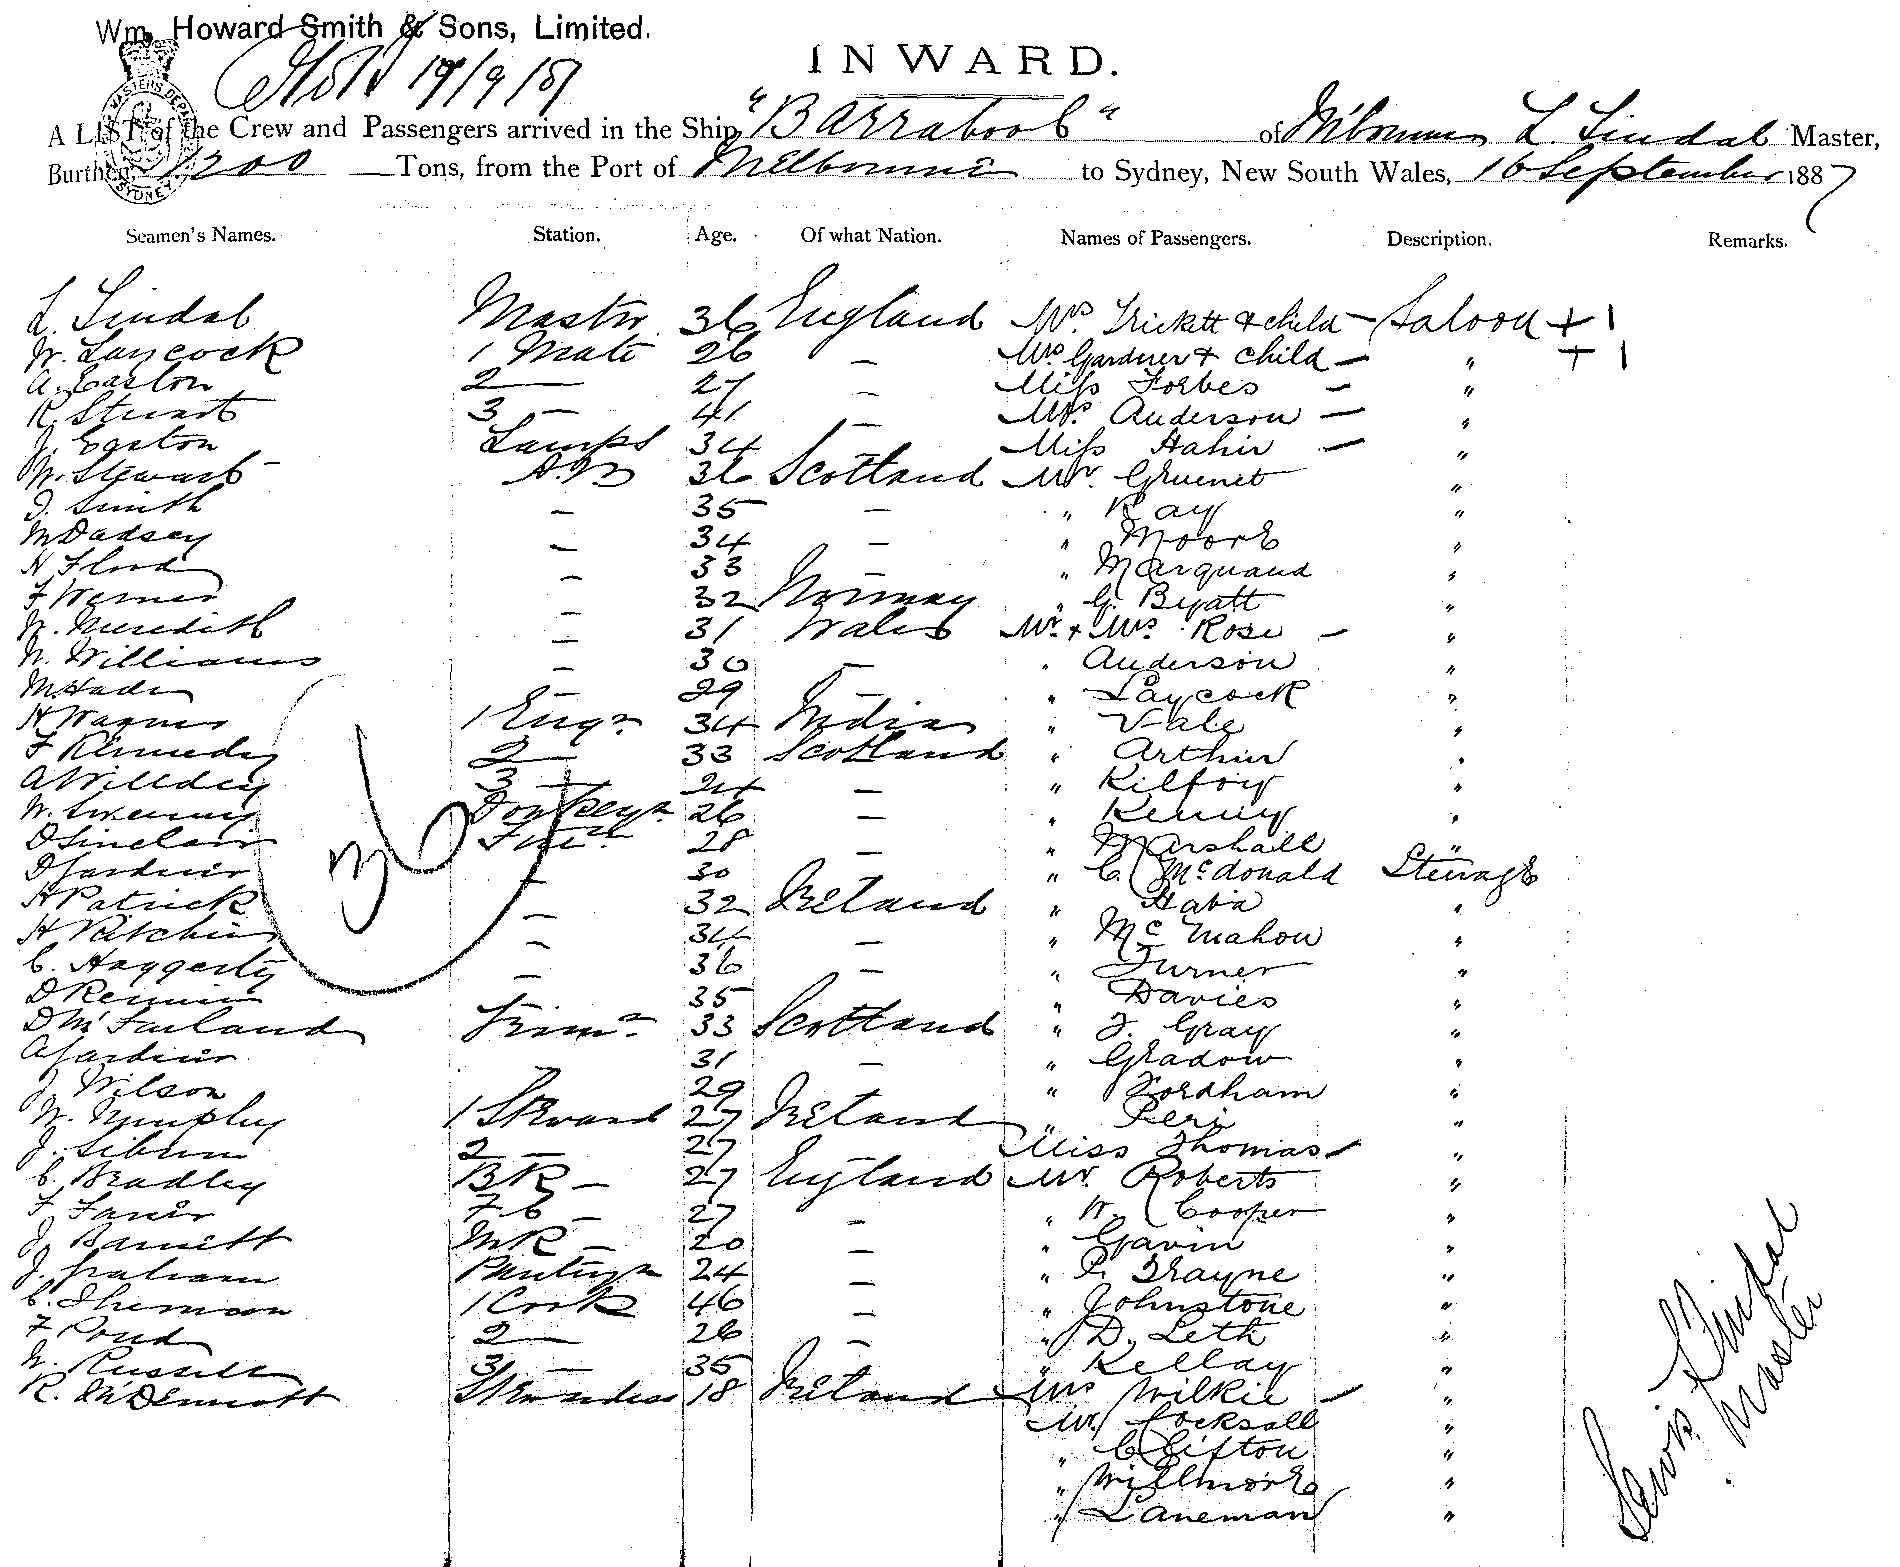 Wm. Howard Smith & Sons, Limited.
19/9/87
INWARD.
A LIST of the Crew and Passengers arrived in the Ship "Barrabool" of Melbourne L. Lindal Master,
Burthen 1200 Tons, from the Port of Melbourne to Sydney, New South Wales, 16 September 1887
MASTERS DEPT SYDNEY
Seamen's Names. Station. Age. Of what Nation. Names of Passengers. Description. Remarks.
L. Lindal Master 36 England Mrs. Trickett & child — Saloon + 1
W. Laycock 1 Mate 26 — Mrs Gardner & child — " + 1
A. Easton 2 — 27 — Miss Forbes — "
R. Stuart 3 — 41 — Mrs. Anderson — "
J. Easton Lamps 34 — Miss Hahir — "
W. Stewart A.B 36 Scotland Mr. Gruenet "
J. Smith — 35 — " Ray "
M Dadsey — 34 — " Moore "
H Flood — 33 — " Marquand "
F Werner — 32 Norway " G. Byatt "
W. Meredith — 31 Wales Mr. & Mrs. Rose — "
W. Williams — 30 — " Anderson "
M. Hade — 29 — " Laycock "
H Wagner 1 Engr 34 India " Vale "
F Kennedy 2 — 33 Scotland " Arthur "
A Willdey 3 — 24 — " Kilfoy "
W. Sweeney Donkeyn 26 — " Kenny "
D Sinclair Firen 28 — " Marshall "
D Gardiner — 30 " C. McDonald Steerage
H Patrick — 32 Ireland " Hata "
H Ritchie — 34 — " McMahon "
C. Haggerty — 36 — " Turner "
D Rennie 35 " Davies "
D McFarland Trimr 33 Scotland " J. Gray "
A Gardiner 31 — " Gradow "
J Wilson 29 " Fordham "
W. Murphy 1 Steward 27 Ireland " Peri "
J. Siblin 2 — 27 Miss Thomas — "
C. Bradley BR — 27 England Mr. Roberts "
F Farrer F C — 27 — " W. Cooper "
J. Barnett MR — 20 — " Gavin "
J. Graham Pantryn 24 — " P. Trayne "
C. Thomson 1 Cook 46 — " Johnstone "
F Pond 2 — 26 — " D. Leth "
W. Russell 3 — 35 " Kellay "
R. McDermott Stewardess 18 Ireland Mrs Wilkie — "
Mr. Cocksall "
" C Clifton "
" Willmore "
" Laneman "
36
Lewis Lindal
Master